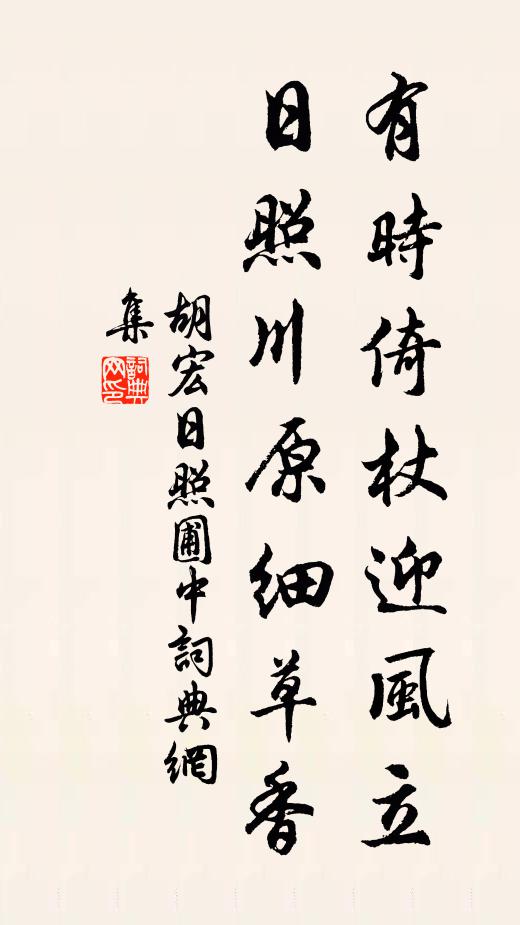 有時倚杖迎風立
日照川原細草香
胡宏日照圃中詞典網
集
詞典
网印